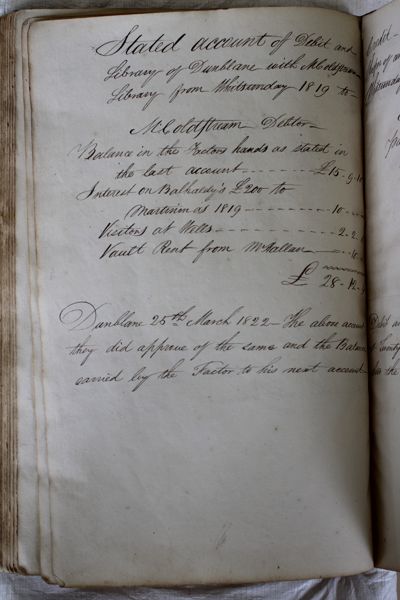 Stated account of Debit and
Library of Dunblane with M Coldstream
Library from Whitsunday 1819 to
M Coldstream Debtor
Balance in the Factors hands as stated in
the last account £15-9-10
Interest on Balhaldy's £200 to
Martinmas 1819 10
Visitors at Wells 2-2
Vault Rent from McKellan
£ 28-12
Dunblane 25th March 1822 - The above account
they did approve of the same and the Balance
carried by the Factor to his next account